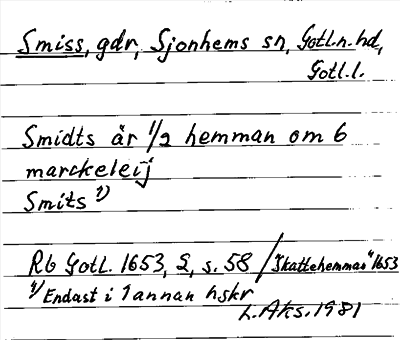 Smiss, gdr, Sjonhems sn, Gotl. n. hd,
Gotl. l.
Smidts är 1/2 hemman om 6
marckeleij
Smits 1)
Rb Gotl. 1653, 2, s. 58 / "Skattehemman" 1653
1) Endast i 1 annan hskr
L. Aks. 1981